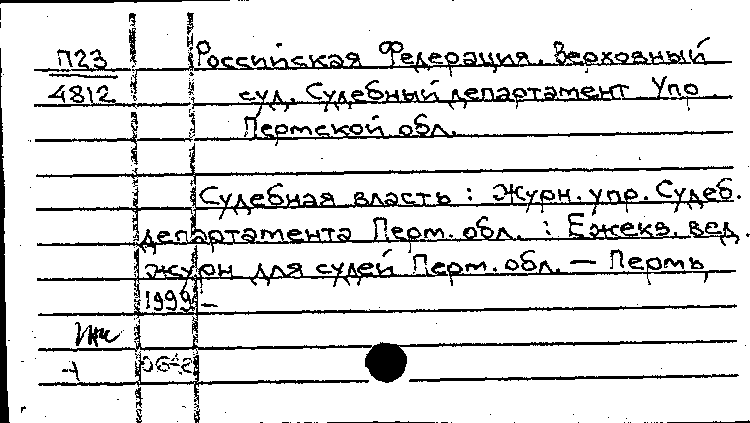 П23 Российская Федерация. Верховный
4812 суд. Судебный департамент Упр.
Пермской обл.
Судебная власть : Журн. упр. Судеб.
департамента Перм. обл. : Ежекв. вед.
журн для судей Перм. обл. — Пермь,
1999 –